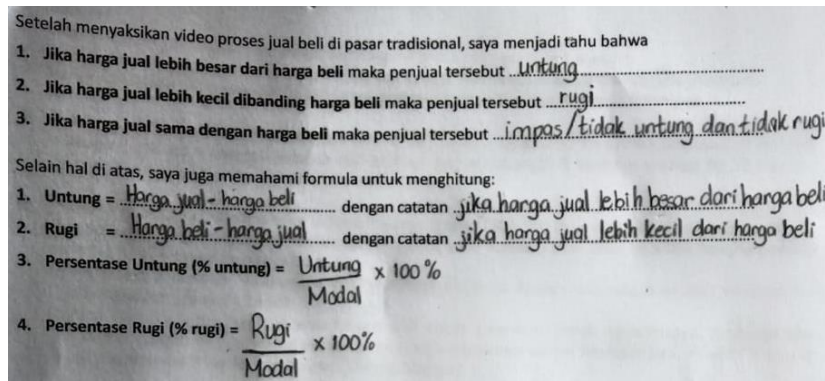 Setelah menyaksikan video proses jual beli di pasar tradisional, saya menjadi tahu bahwa
1. Jika harga jual lebih besar dari harga beli maka penjual tersebut ...untung...
2. Jika harga jual lebih kecil dibanding harga beli maka penjual tersebut ...rugi...
3. Jika harga jual sama dengan harga beli maka penjual tersebut ...impas/tidak untung dan tidak rugi
Selain hal di atas, saya juga memahami formula untuk menghitung:
1. Untung = ...Harga jual - harga beli... dengan catatan ...jika harga jual lebih besar dari harga beli
2. Rugi = ...Harga beli - harga jual... dengan catatan ...jika harga jual lebih kecil dari harga beli
3. Persentase Untung (% untung) = Untung x 100 %
Modal
4. Persentase Rugi (% rugi) = Rugi x 100%
Modal